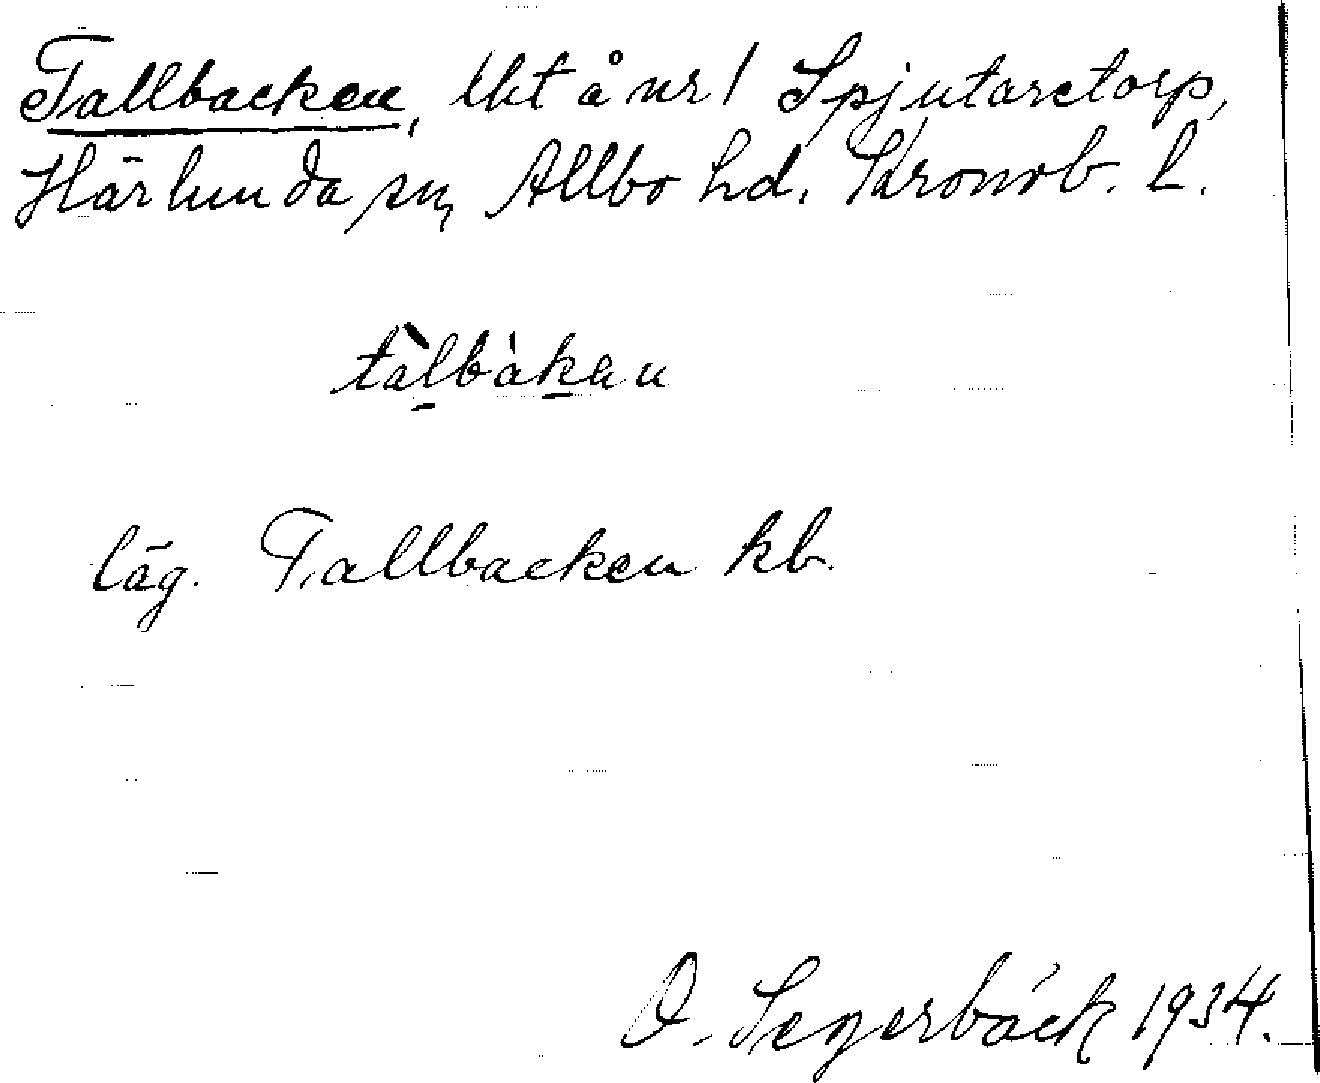 Tallbacken, lht å nr 1 Spjutaretorp,
Härlunda sn, Allbo hd. Kronob. L.
tàlbàkan
läg. Tallbacken kb.
O. Segerbäck 1934.